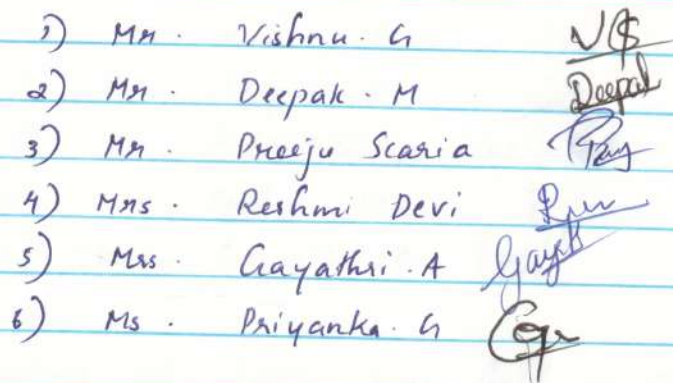 1) Mr. Vishnu. G
2) Mr. Deepak. M Deepak
3) Mr. Preeju Scaria
4) Mrs. Reshmi Devi
5) Mrs. Gayathri. A
6) Ms. Priyanka. G